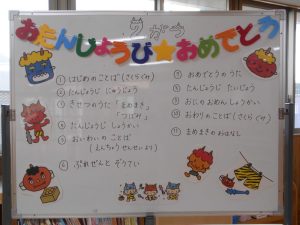 2がつ
おたんじょうび★おめでとう
① はじめのことば(さくらぐみ)
② たんじょうじ にゅうじょう
③ きせつのうた「まめまき」
「つばみ」
④ たんじょうじ しょうかい
⑤ おいわいの ことば
(えんちょうせんせいより)
⑥ ぷれぜんと ぞうてい
⑦ おめでとうのうた
⑧ たんじょうじ たいじょう
⑨ おにのおめんしょうかい
⑩ おわりのことば(さくらぐみ)
⑪ まめまきのおはなし